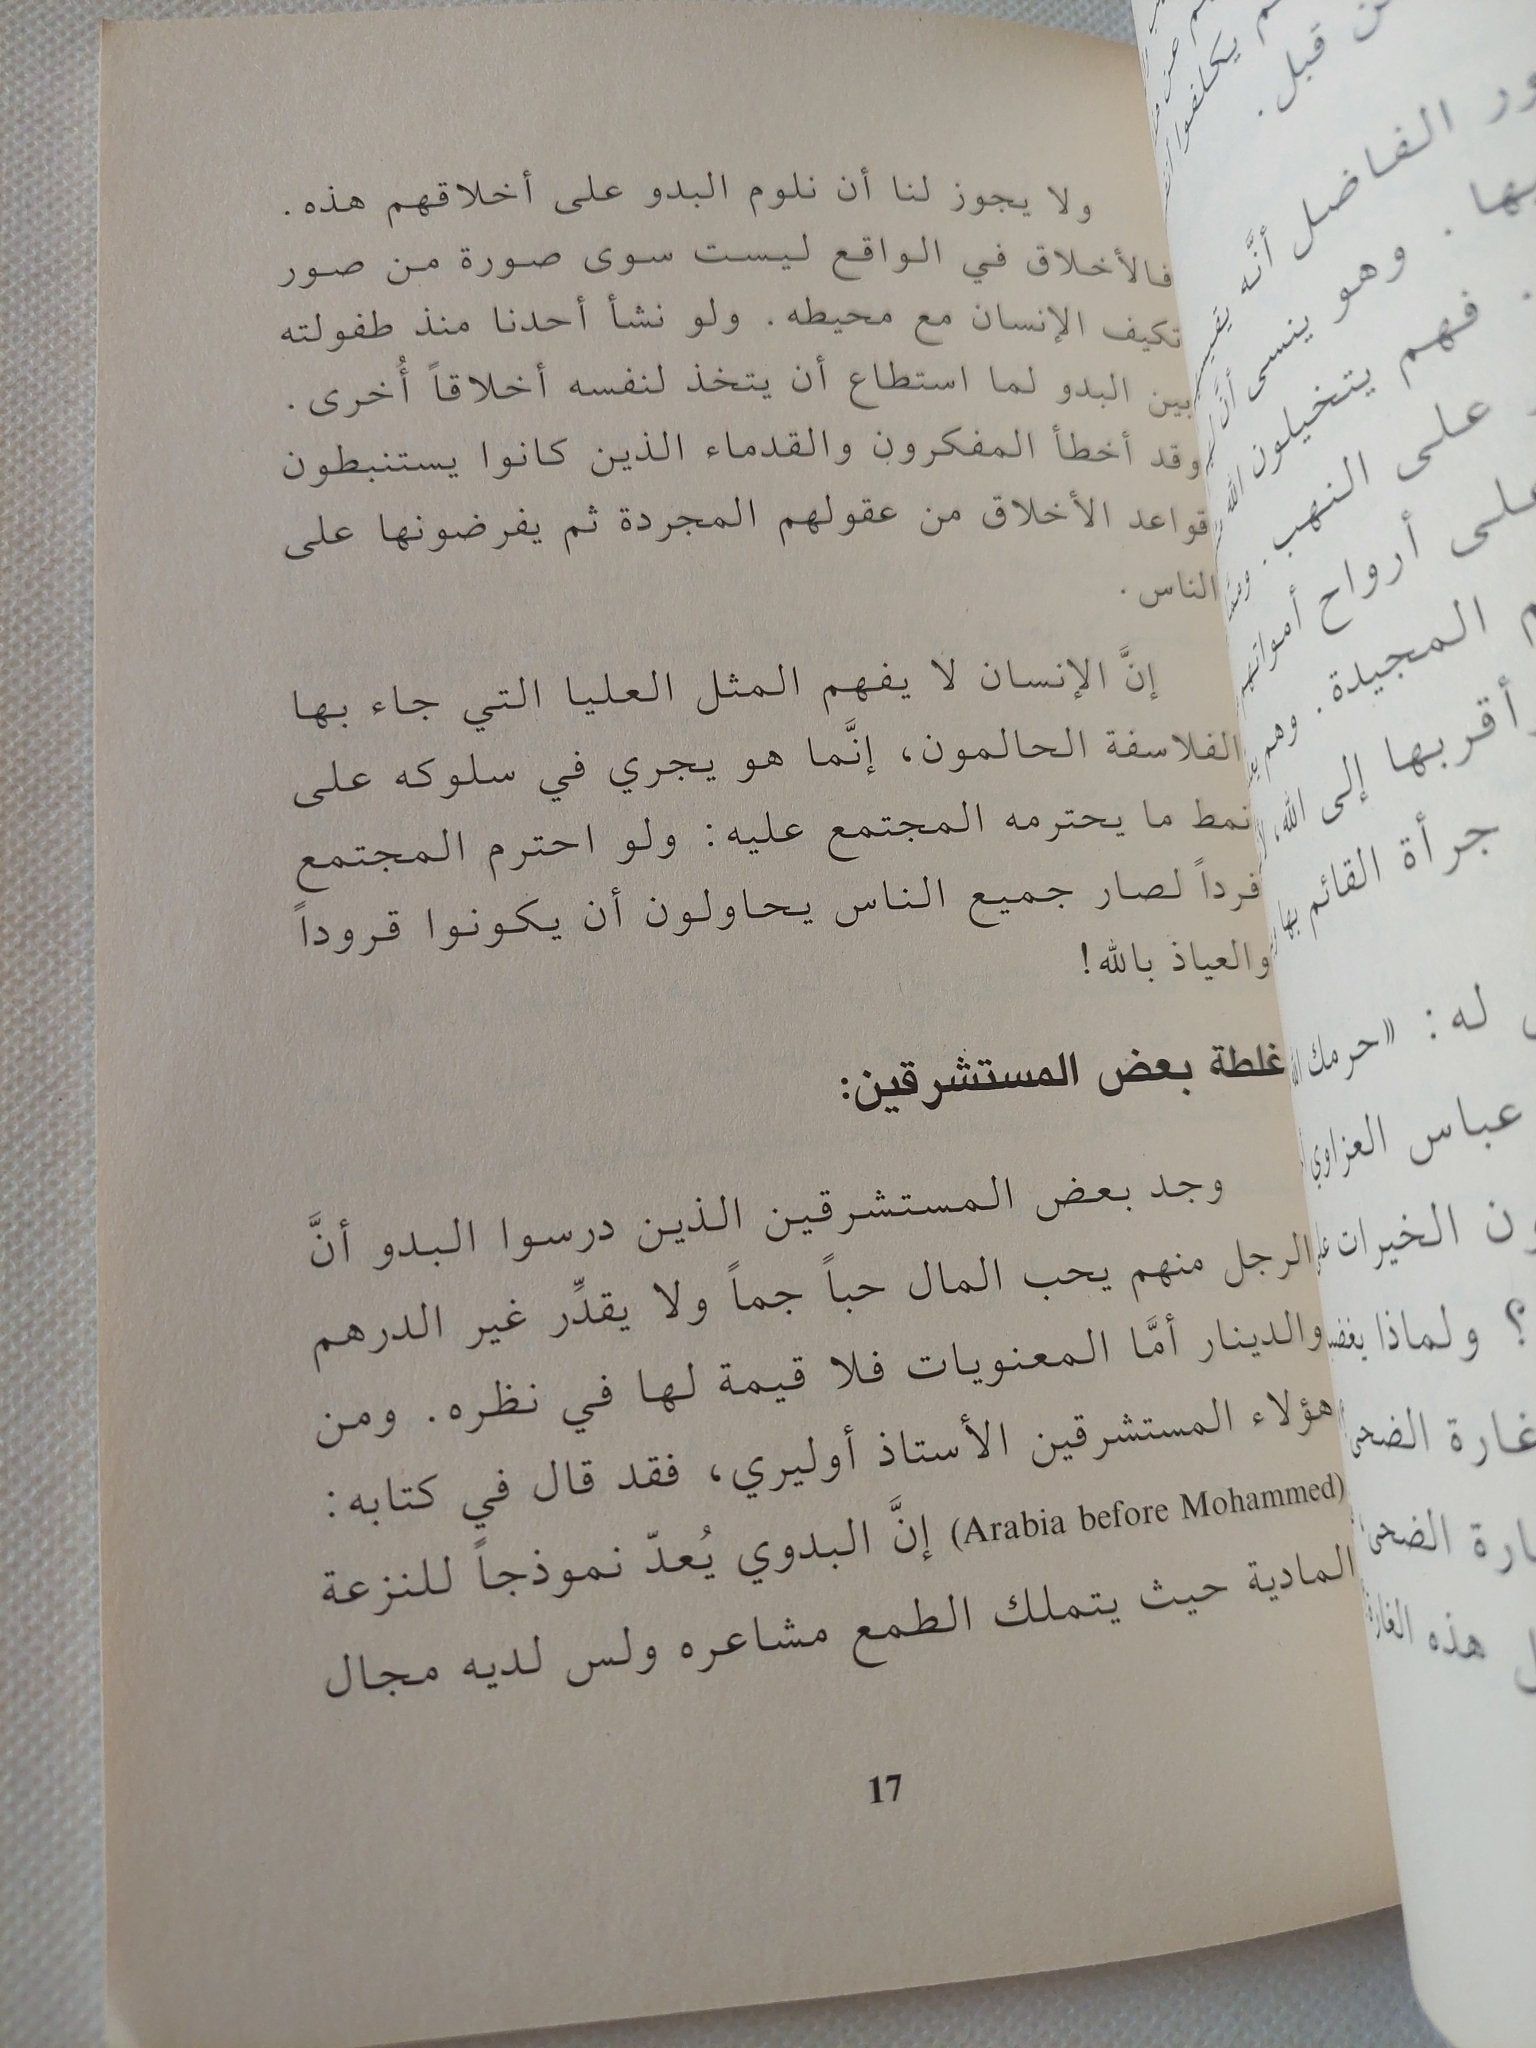 ولا يجوز لنا أن نلوم البدو على أخلاقهم هذه.
فالأخلاق في الواقع ليست سوى صورة من صور
تكيف الإنسان مع محيطه. ولو نشأ أحدنا منذ طفولته
بين البدو لما استطاع أن يتخذ لنفسه أخلاقاً أُخرى.
وقد أخطأ المفكرون والقدماء الذين كانوا يستنبطون
قواعد الأخلاق من عقولهم المجردة ثم يفرضونها على
الناس.
إنَّ الإنسان لا يفهم المثل العليا التي جاء بها
الفلاسفة الحالمون، إنَّما هو يجري في سلوكه على
نمط ما يحترمه المجتمع عليه: ولو احترم المجتمع
فرداً لصار جميع الناس يحاولون أن يكونوا قروداً
والعياذ بالله!
غلطة بعض المستشرقين:
وجد بعض المستشرقين الذين درسوا البدو أنَّ
الرجل منهم يحب المال حباً جماً ولا يقدِّر غير الدرهم
والدينار أمَّا المعنويات فلا قيمة لها في نظره. ومن
هؤلاء المستشرقين الأستاذ أوليري، فقد قال في كتابه:
(Arabia before Mohammed) إنَّ البدوي يُعدّ نموذجاً للنزعة
المادية حيث يتملك الطمع مشاعره ولس لديه مجال
17
قبل.
الفاضل أنَّه
وهو ينسى أنَّ
فهم يتخيلون الله
على النهب.
أرواح أمواتهم
المجيدة. وهم
أقربها إلى الله،
جرأة القائم بها
له: «حرمك الله
عباس العزاوي
الخيرات
؟ ولماذا
غارة الضحى
الضحى
هذه الغارة